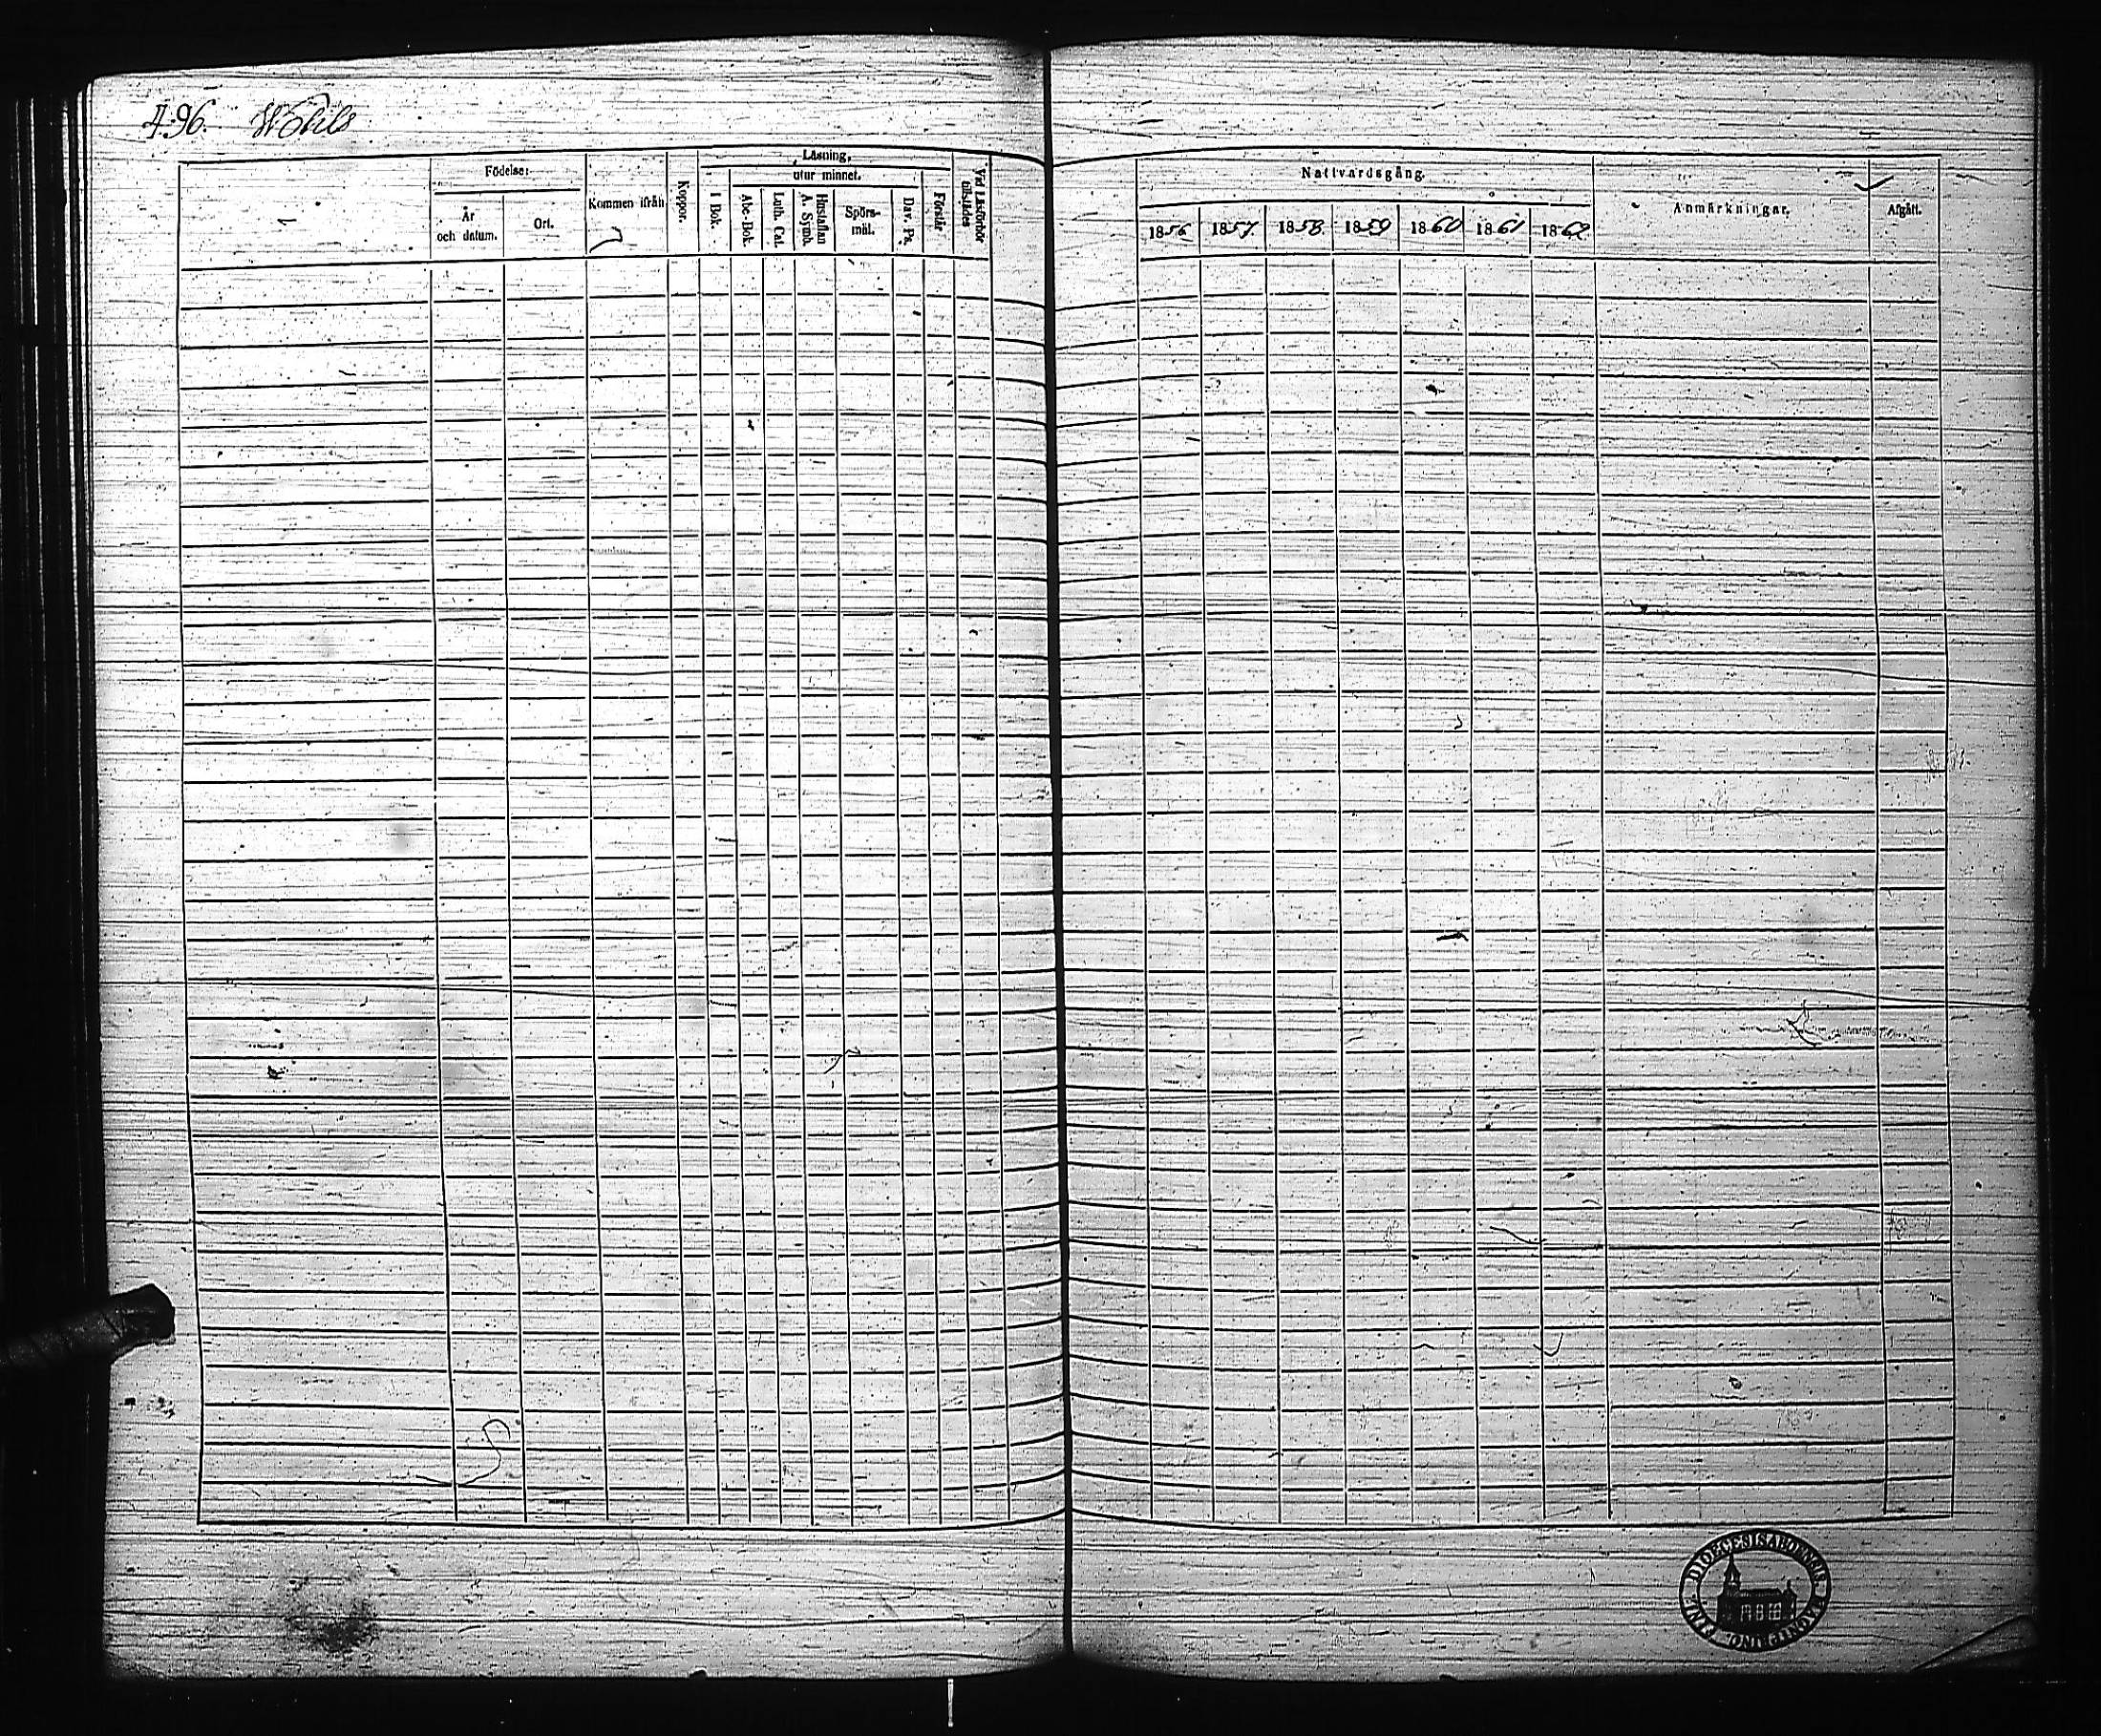 496.
Läsning.
Födelse:
utur minnet.
Kommen ifrån
Koppor.
I Bok.
Abc-Bok.
Luth. Cat.
Hustaflan
A. Symb.
Spörs-
mål.
Dav. Ps.
Förstår
Vid Läsförhör
tillstädes
År
och datum.
Ort.
Nattvardsgång.
Anmärkningar.
Afgått.
1856 1857 1858 1859 1860 1861 1862